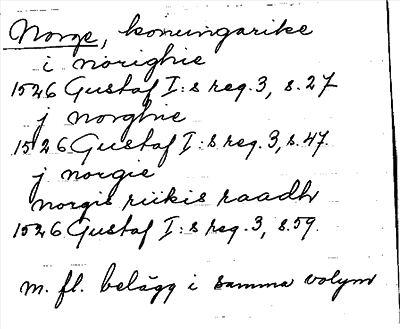 Norge, konungarike
i norighie
1526 Gustaf I:s reg. 3, s. 27
j norghie
1526 Gustaf I:s reg. 3, s. 47.
j norgie
norgis riikis raadh
1526 Gustaf I:s reg. 3, s. 59.
m. fl. belägg i samma volym